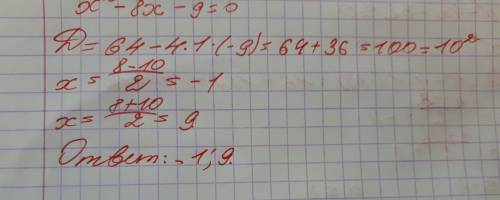 x² - 8x - 9 = 0
D = 64 - 4·1·(-9) = 64 + 36 = 100 = 10²
x = (8-10)/2 = -1
x = (8+10)/2 = 9
Ответ: -1; 9.